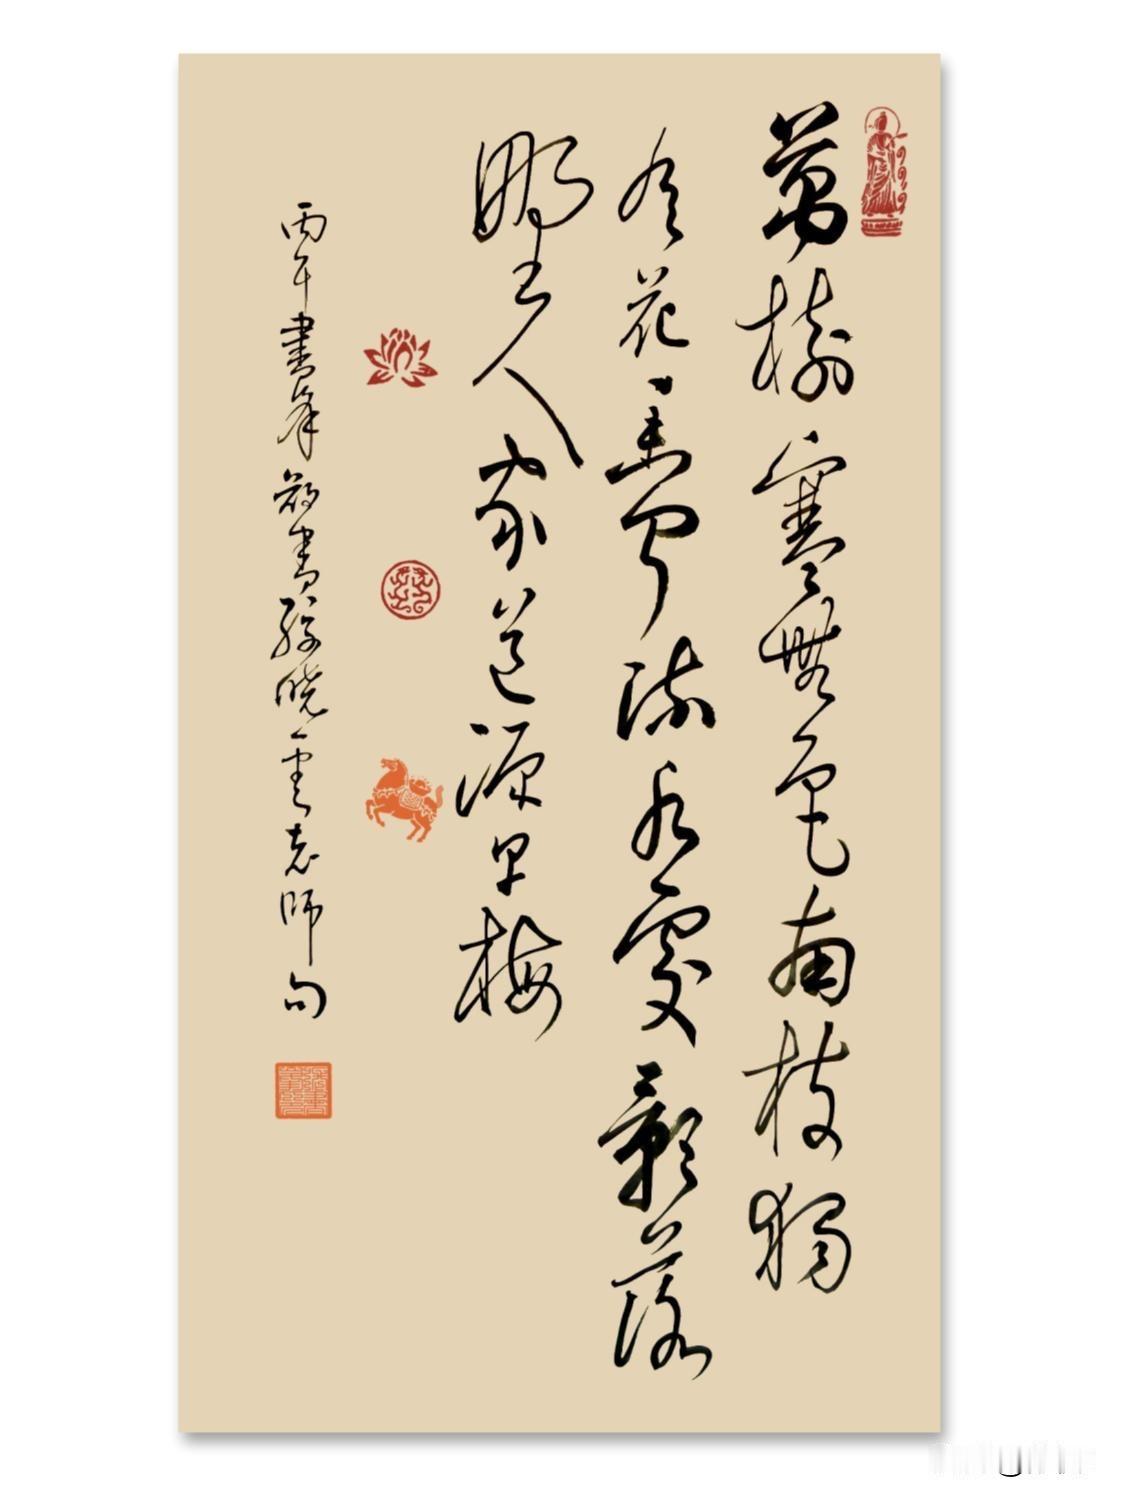 萬樹寒無色南枝獨
有花香聞流水處影落
野人家道源早梅
丙午書峯敬書孫曉雲老師句